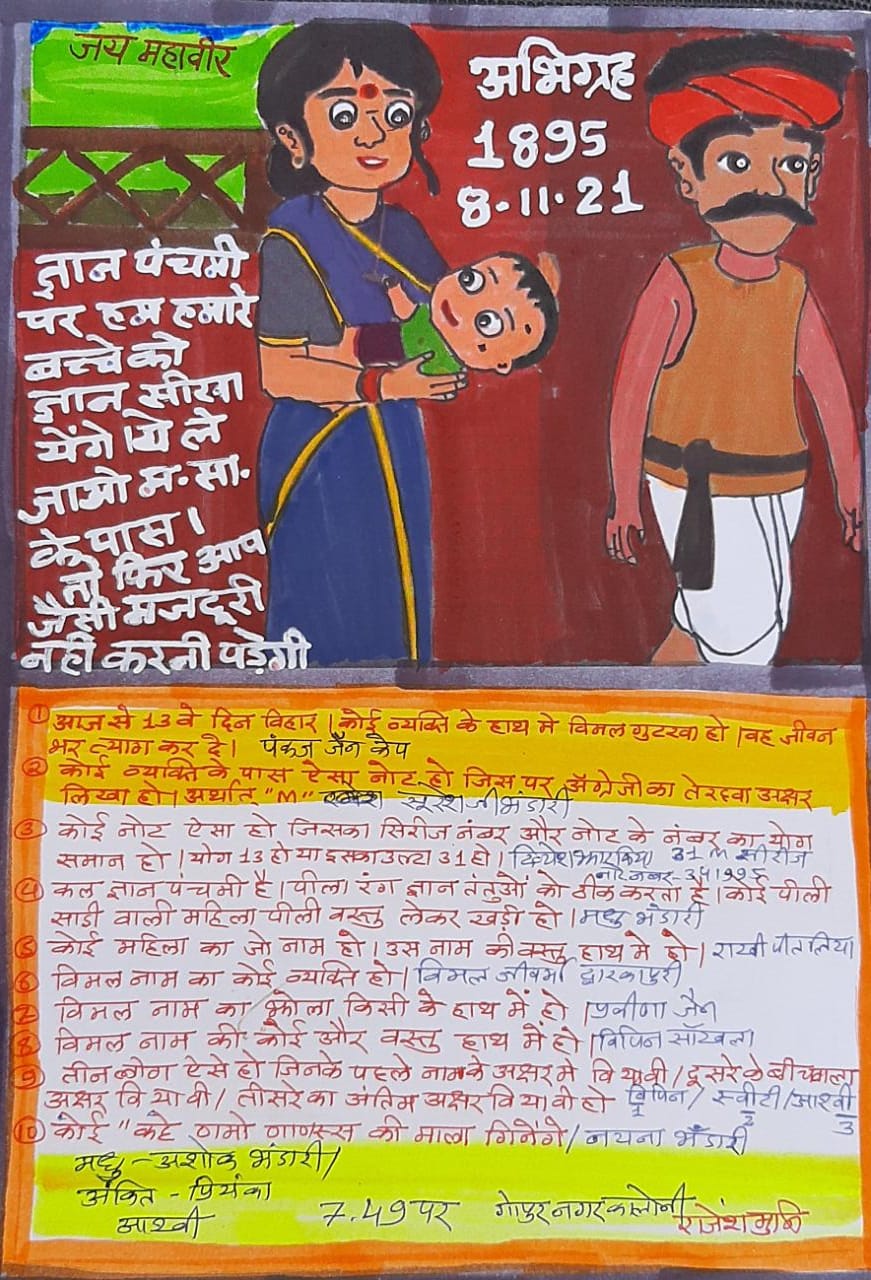 जय महावीर
अभिग्रह
1895
8-11-21
ज्ञान पंचमी
पर हम हमारे
बच्चे को
ज्ञान सीखा
येंगे ।ये ले
जाओ म.सा.
के पास ।
तो फिर आप
जैसी मजदूरी
नही करनी पड़ेगी
① आज से 13 वे दिन विहार । कोई व्यक्ति के हाथ मे विमल गुटखा हो । वह जीवन
भर त्याग कर दे। पंकज जैन केप
② कोई व्यक्ति के पास ऐसा नोट हो जिस पर अंग्रेजी का तेरहवा अक्षर
लिखा हो । अर्थात् "M" सुरेश जी भंडारी
③ कोई नोट ऐसा हो जिसका सिरीज नंबर और नोट के नंबर का योग
समान हो । योग 13 हो या इसका उल्टा 31 हो । 31 M सीरीज
नोट नंबर-
④ कल ज्ञान पंचमी है । पीला रंग ज्ञान तंतुओं को ठीक करता है । कोई पीली
साड़ी वाली महिला पीली वस्तु लेकर खड़ी हो । मधु भंडारी
⑤ कोई महिला का जो नाम हो । उस नाम की वस्तु हाथ मे हो । राखी पीतलिया
⑥ विमल नाम का कोई व्यक्ति हो । विमल जी वर्मा द्वारकापुरी
⑦ विमल नाम का झोला किसी के हाथ में हो । प्रवीणा जैन
⑧ विमल नाम की कोई और वस्तु हाथ में हो । विपिन सॉखला
⑨ तीन लोग ऐसे हो जिनके पहले नाम के अक्षर मे वि या वी / दूसरे के बीच वाला
अक्षर वि या वी / तीसरे का अंतिम अक्षर वि या वी हो विपिन / स्वीटी / आश्वी
1 2 3
⑩ कोई "कहे णमो णाणस्स की माला गिनेंगे / नयना भँडारी
मधु - अशोक भंडारी /
अंकित - प्रियंका
आश्वी
7.49 पर गोपुर नगर कालोनी राजेश मुनि